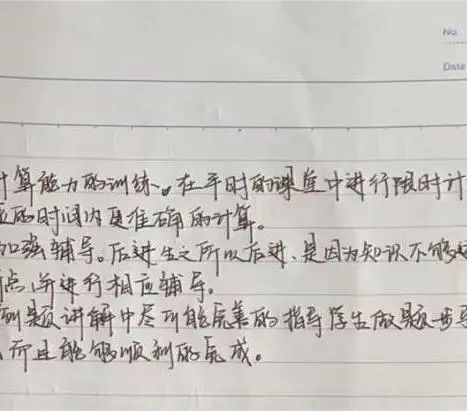 No.
Date
计算能力的训练。在平时的课堂中进行限时计
的时间内更准确的计算。
加强辅导。后进生之所以后进,是因为知识不够
点,并进行相应辅导。
例题讲解中尽可能完善的指导学生做题步
,而且能够顺利的完成。